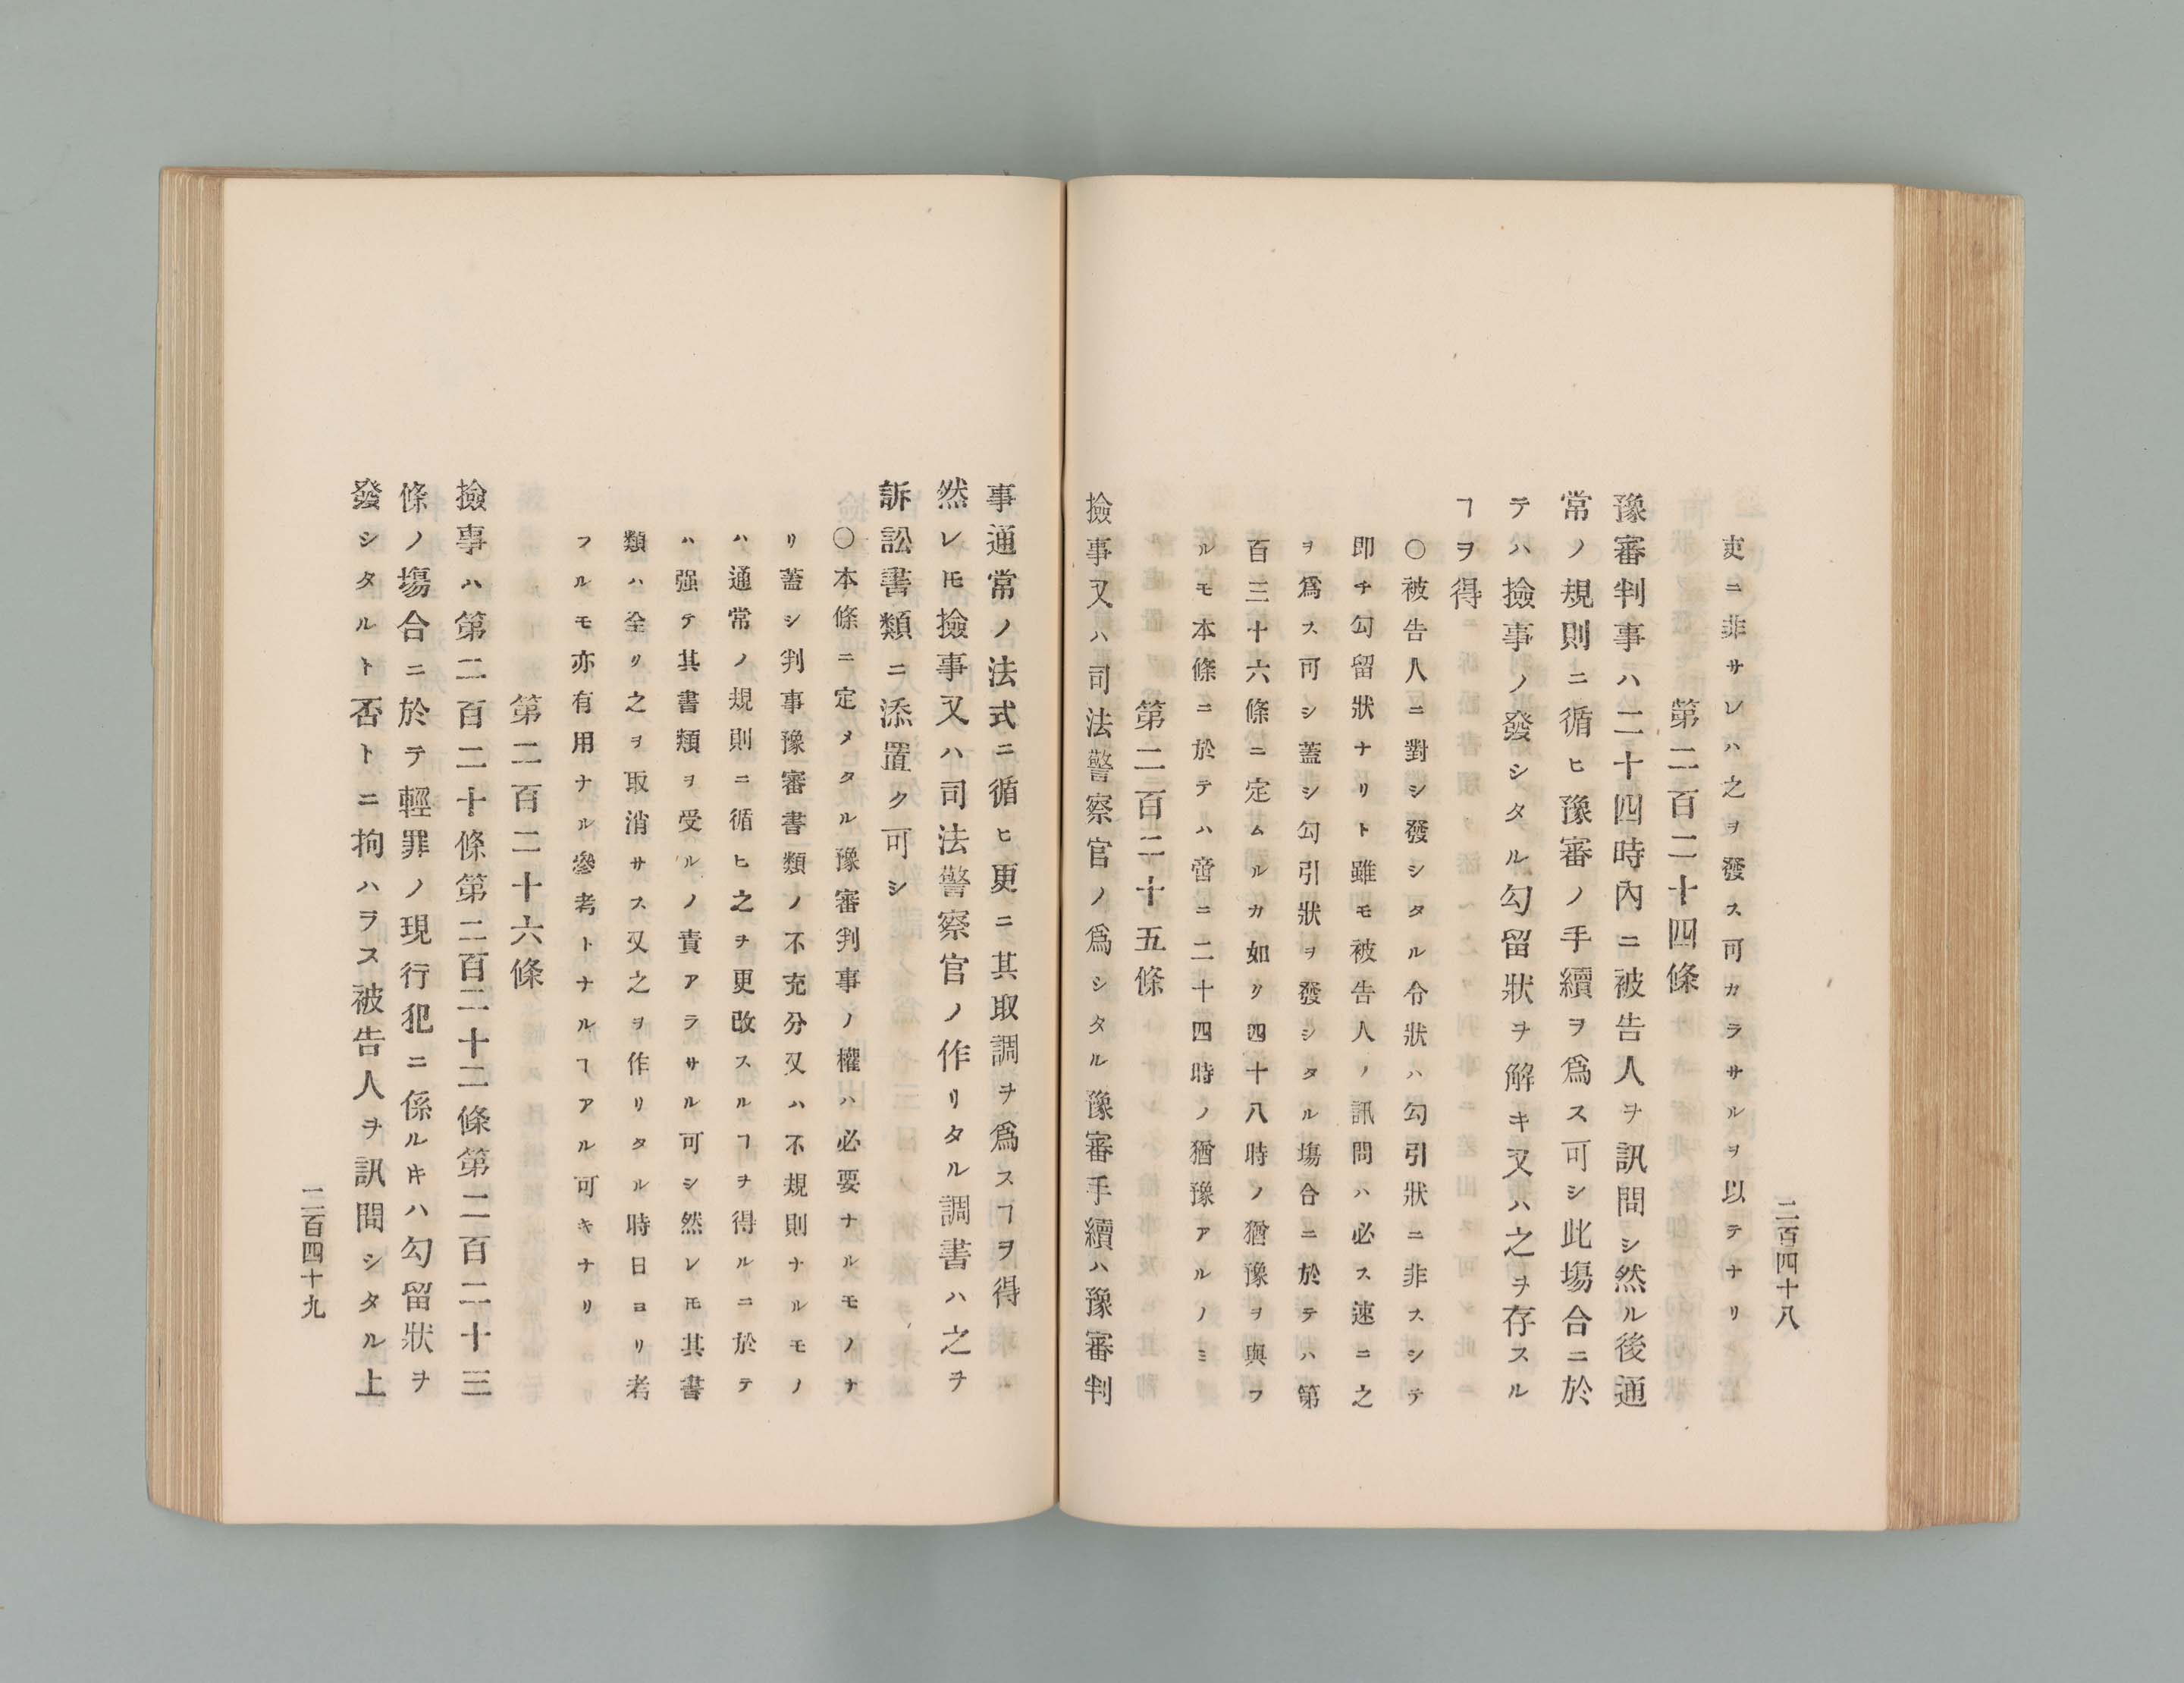 二百四十八
吏ニ非サレハ之ヲ發ス可カラサルヲ以テナリ
第二百二十四條
豫審判事ハ二十四時內ニ被告人ヲ訊問シ然ル後通
常ノ規則ニ循ヒ豫審ノ手續ヲ爲ス可シ此塲合ニ於
テハ撿事ノ發シタル勾留狀ヲ解キ又ハ之ヲ存スル
ヿヲ得
○被告人ニ對シ發シタル令狀ハ勾引狀ニ非スシテ
即チ勾留狀ナリト雖モ被告人ノ訊問ハ必ス速ニ之
ヲ爲ス可シ蓋シ勾引狀ヲ發シタル塲合ニ於テハ第
百三十六條ニ定ムルカ如ク四十八時ノ猶豫ヲ與フ
ルモ本條ニ於テハ啻ニ二十四時ノ猶豫アルノミ
第二百二十五條
撿事又ハ司法警察官ノ爲シタル豫審手續ハ豫審判
事通常ノ法式ニ循ヒ更ニ其取調ヲ爲スヿヲ得
然レ𪜈撿事又ハ司法警察官ノ作リタル調書ハ之ヲ
訴訟書類ニ添置ク可シ
○本條ニ定メタル豫審判事ノ權ハ必要ナルモノナ
リ蓋シ判事豫審書類ノ不充分又ハ不規則ナルモノ
ハ通常ノ規則ニ循ヒ之ヲ更改スルヿヲ得ルニ於テ
ハ强テ其書類ヲ受ルノ責アラサル可シ然レ𪜈其書
類ハ全ク之ヲ取消サス又之ヲ作リタル時日ヨリ考
フルモ亦有用ナル參考トナルヿアル可キナリ
第二百二十六條
撿事ハ第二百二十條第二百二十二條第二百二十三
條ノ塲合ニ於テ輕罪ノ現行犯ニ係ルキハ勾留狀ヲ
發シタルト否トニ拘ハラス被告人ヲ訊問シタル上
二百四十九